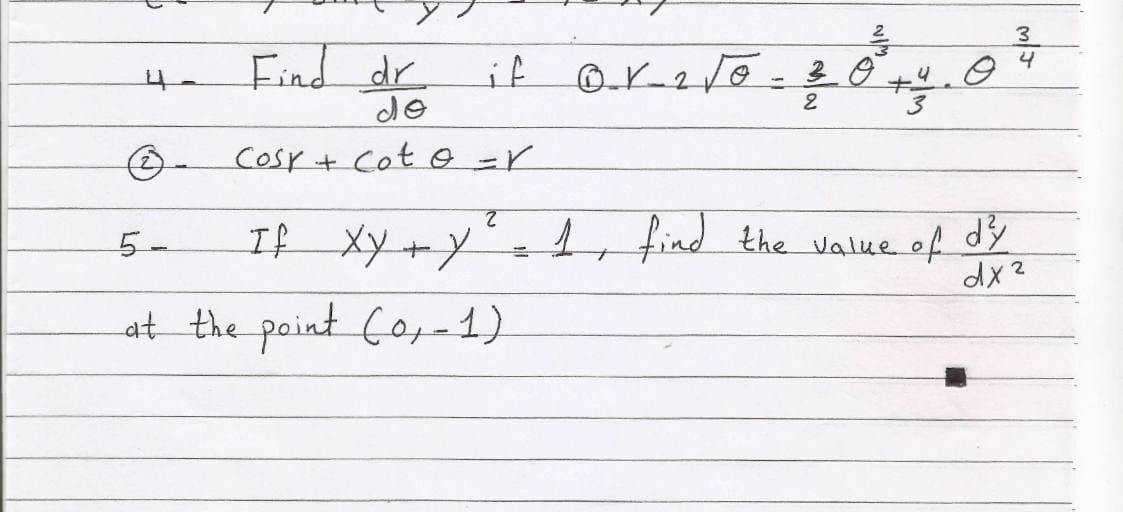 4- Find dr/dθ if ①-r-2√θ = 3/2 θ^(2/3) + 4/3 . θ^(3/4)
②- cosr + cot θ = r
5- If xy + y² = 1, find the value of d²y/dx²
at the point (0,-1)